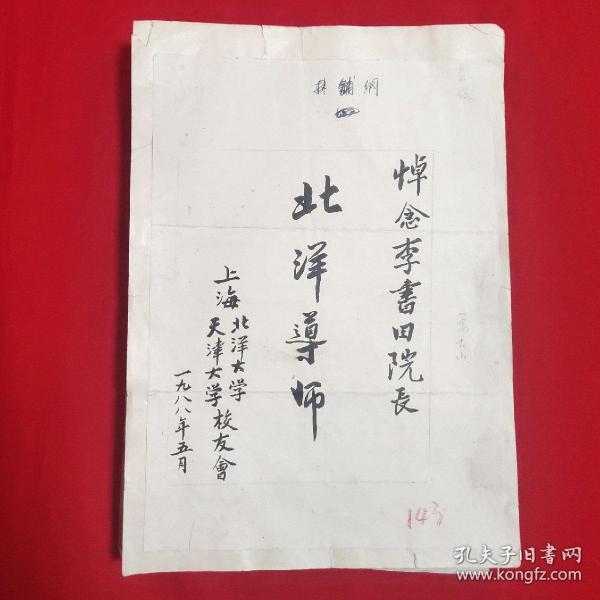 悼念李書田院長
北洋導师
上海北洋大学
天津大学校友會
一九八八年五月
143
孔夫子旧書网
www.kongfz.com